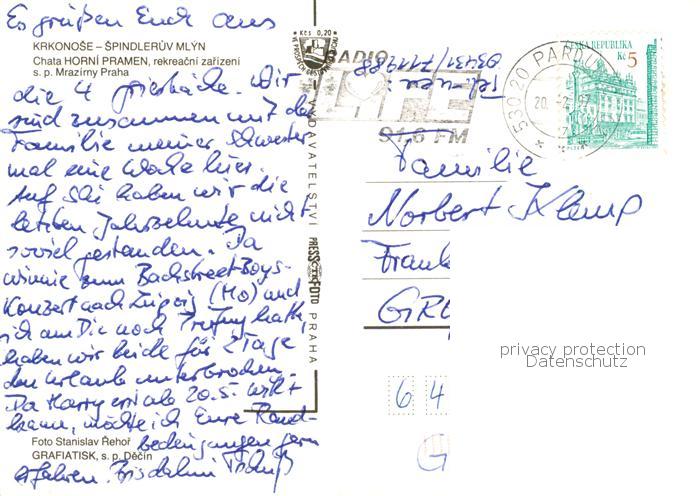 Es grüßen Euch aus
KRKONOŠE – ŠPINDLERŮV MLÝN
Chata HORNÍ PRAMEN, rekreační zařízení
s. p. Mrazírny Praha
die 4 . Wir
sind zusammen mit der
Familie meiner Schwester
mal eine Woche hier.
Auf Ski haben wir die
letzten Jahrzehnte nicht
soviel gestanden. Da
zum Backstreet-Boys-
Konzert nach Leipzig (Mo) und
ich am Die noch hatte,
haben wir beide für 2 Tage
den Urlaub unterbrochen.
Da Harry erst ab 20.5.
kann, möchte ich Eure Rand-
bedingungen gern
erfahren. Bis dahin Tschüß
Foto Stanislav Řehoř
GRAFIATISK, s. p. Děčín
Kčs 0,20
VYDAVATELSTVÍ PRESSFOTO PRAHA
RADIO
LIFE
91,6 FM
530 20 PARDU
20.
ČESKÁ REPUBLIKA
Kč 5
Familie
Norbert Klemp
Frank
GRE
privacy protection
Datenschutz
6 4
G